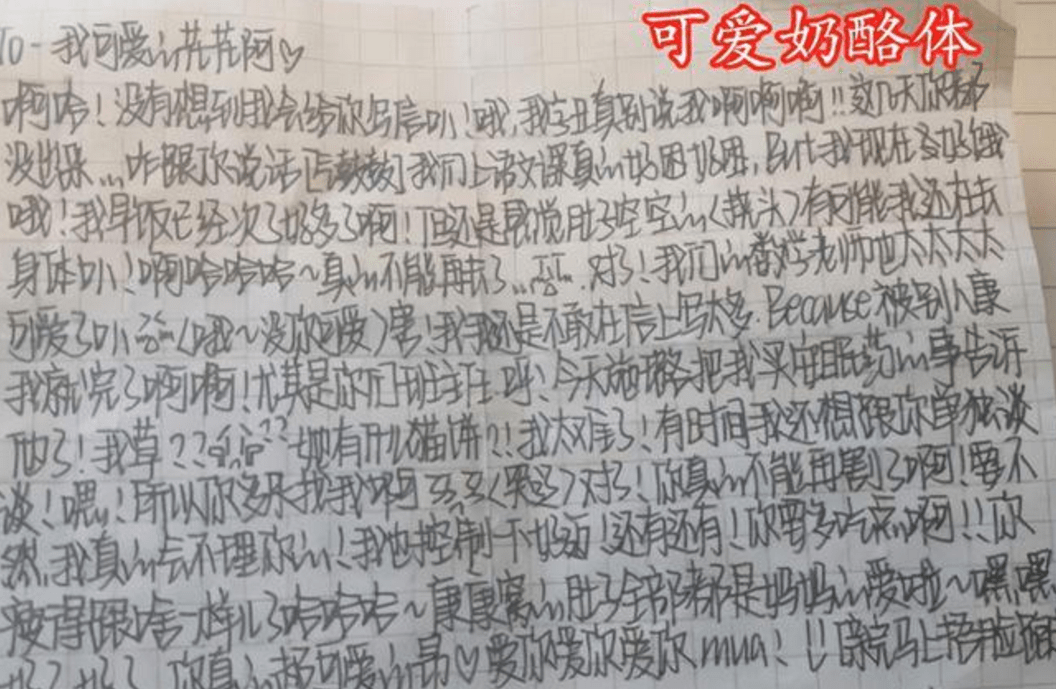 可爱奶酪体
TO-我可爱的花花阿♡
啊哈！没有想到我会给你写信叭！哦，我字丑真别说我啊啊啊!!这几天你都
没出来...咋跟你说话[气鼓鼓]我们上语文课真的好困好困，且我现在多好饿
哦！我早饭已经次了好多了啊！但还是感觉肚子空空的(挠头)有可能我还在长
身体叭！啊哈哈哈~真的不能再长了...对了！我们的数学老师也太太太太
可爱了叭(哦~没你可爱)害！我还是不敢在信上写太多.Because被别人康
我就完了啊啊！尤其是你们班主任呀！今天她把我买安眠药的事告诉
他了！我草??她有什么猫饼?!我太难了！有时间我还想跟你单独谈
谈！嗯！所以你多来找我啊(哭了)对了！你真的不能再割了啊！要不
然，我真的会不理你的！我也控制一下好吧！还有还有！你要多吃点啊!!你
瘦得跟啥一样儿了哈哈哈~康康窝的肚子全部都是妈妈的爱啦~嘿嘿
好了好了你真的超可爱的昂♡爱你爱你爱你mua!!